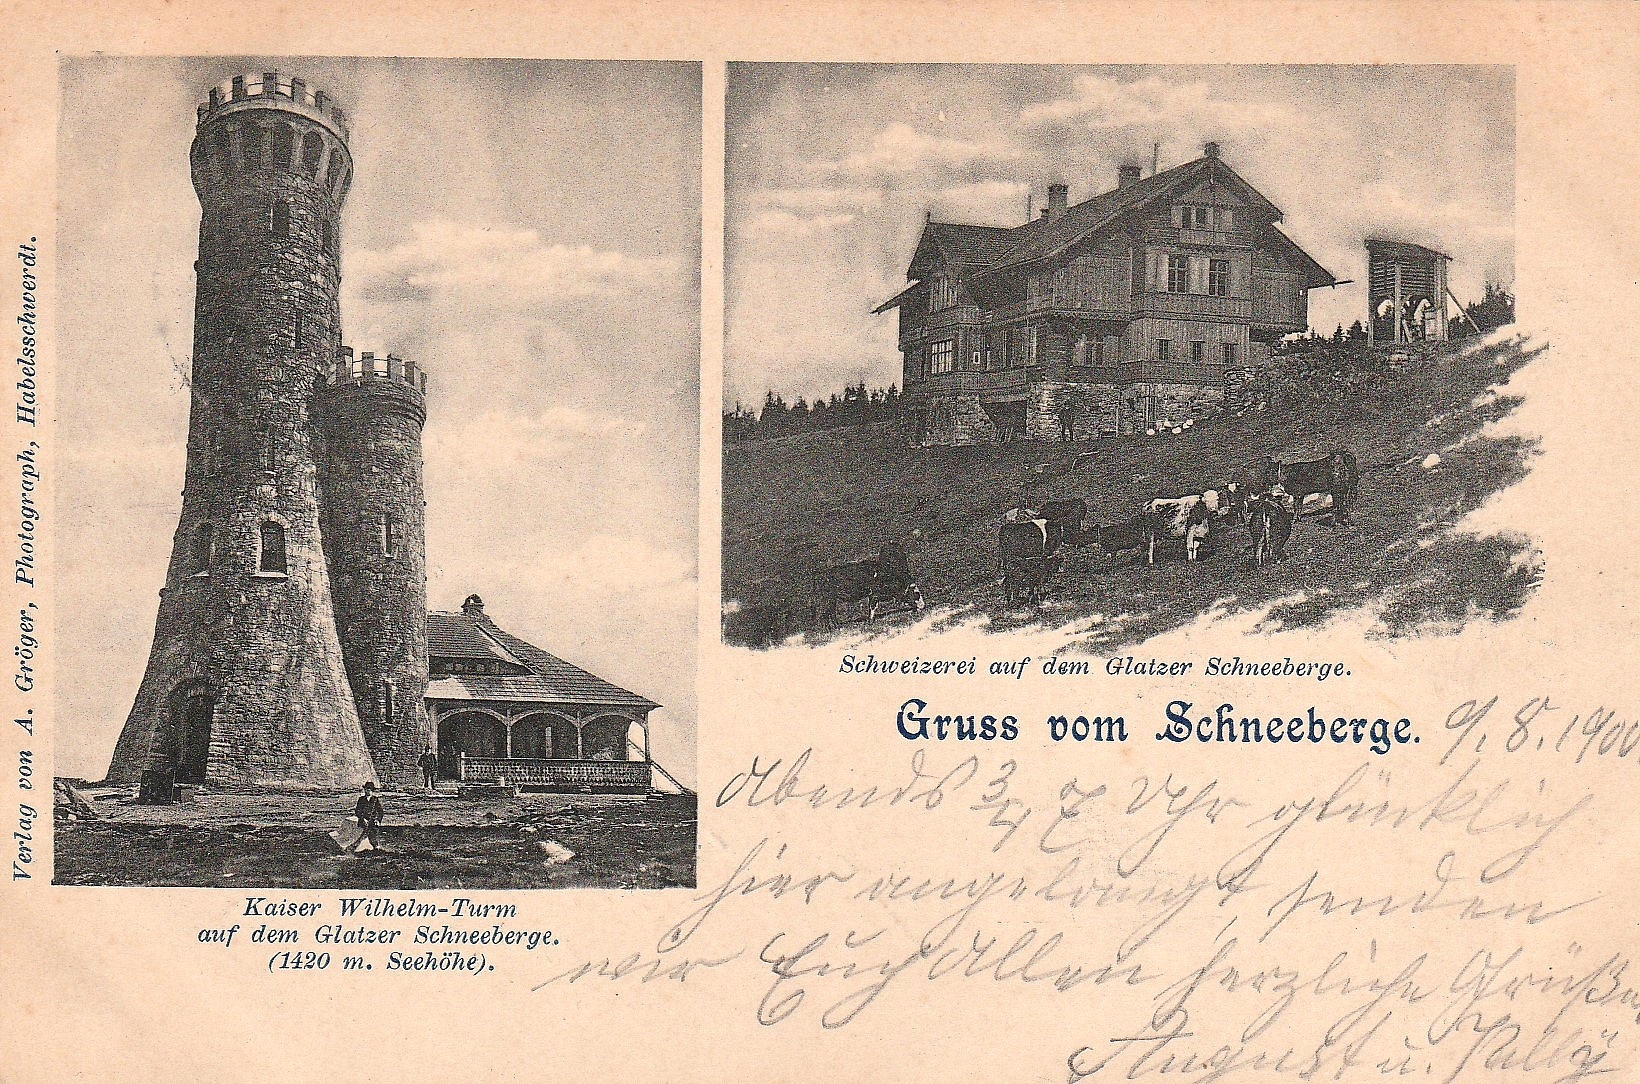 Verlag von A. Gröger, Photograph, Habelsschwerdt.
Kaiser Wilhelm-Turm
auf dem Glatzer Schneeberge.
(1420 m. Seehöhe).
Schweizerei auf dem Glatzer Schneeberge.
Gruss vom Schneeberge. 9/8.1900
Abends 3/4 7 Uhr glücklich
hier angelangt, senden
wir Euch Allen herzliche Grüße
August u.